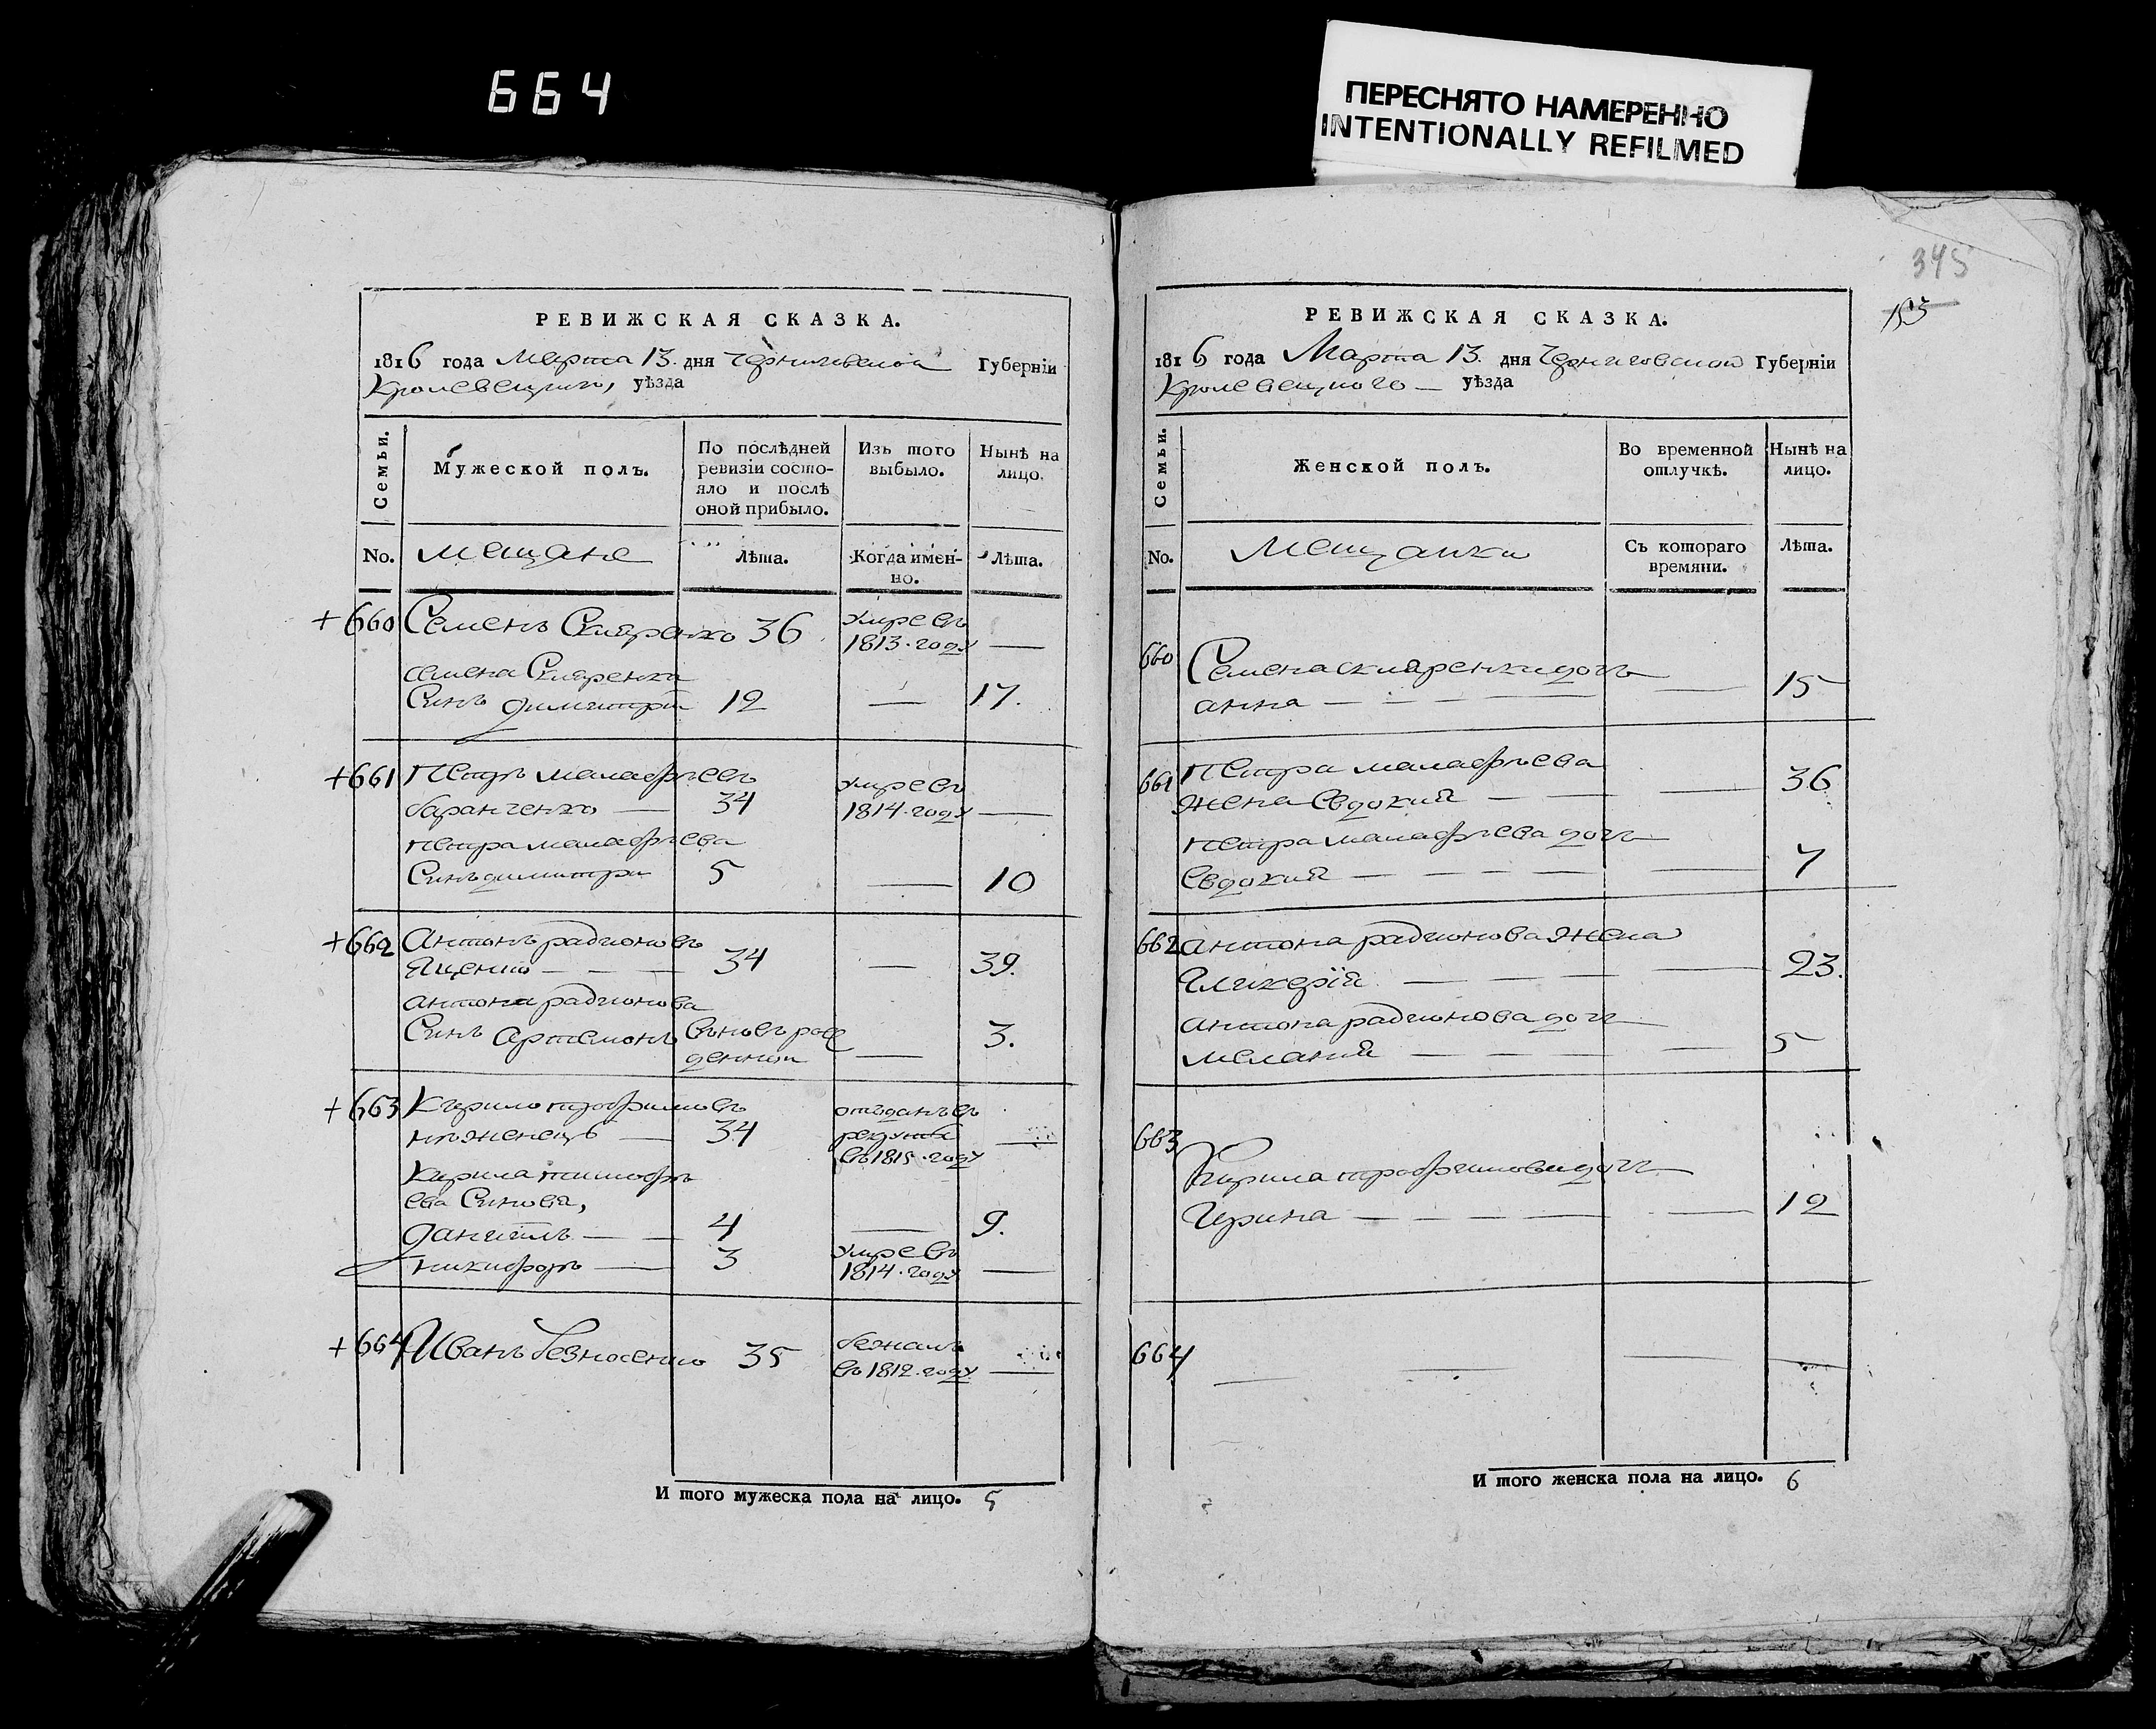 664
ПЕРЕСНЯТО НАМЕРЕННО
INTENTIONALLY REFILMED
РЕВИЖСКАЯ СКАЗКА.
1816 года Марта 13. дня Черниговской Губерніи
Кролевецкого, уѣзда
Семьи.
Мужеской полъ.
По послѣдней
ревизіи состо-
яло и послѣ
оной прибыло.
Изъ того
выбыло.
Нынѣ на
лицо.
No. мещане
Лѣта.
Когда имен-
но.
Лѣта.
+660 Семенъ Скляренко 36 умре въ
1813 году —
семена Скляренка
Синъ димитрій 12 — 17.
+661 Петръ малафѣевъ умре въ
баранченко — 34 1814 году —
петра малафѣева
Синъ димитри 5 — 10
+662 Антонъ радионовъ
Яценко — — — 34 — 39.
антона радионова
Синъ артемонъ вновь рож
денний — 3.
+663 Кирило трофимовъ отъданъ въ
— 34 рекруты —
въ 1815 году
Кирила тимофѣ
ева Синовя,
данило — — 4 — 9.
никифоръ — 3 умре въ
1814 году —
+664 Иванъ безносенко 35 бежалъ
въ 1812 году —
И того мужеска пола на лицо. 5
345
153
РЕВИЖСКАЯ СКАЗКА.
1816 года Марта 13. дня Черниговской Губерніи
Кролевецкого — уѣзда
Семьи.
Женской полъ.
Во временной
отлучкѣ.
Нынѣ на
лицо.
No. Мещанки
Съ котораго
времяни.
Лѣта.
660 Семена скляренки дочь
анна — — — — — 15
661 Петра малафѣева
жена Евдокия — — — 36
петра малафѣева дочь
Евдокия — — — — — 7
662 антона радионова жена
Гликерія — — — — 23.
антона радионова дочь
мелания — — — — — 5
663
Кирила трофимова дочь
Ирина — — — — — 12
664 — — — —
И того женска пола на лицо. 6